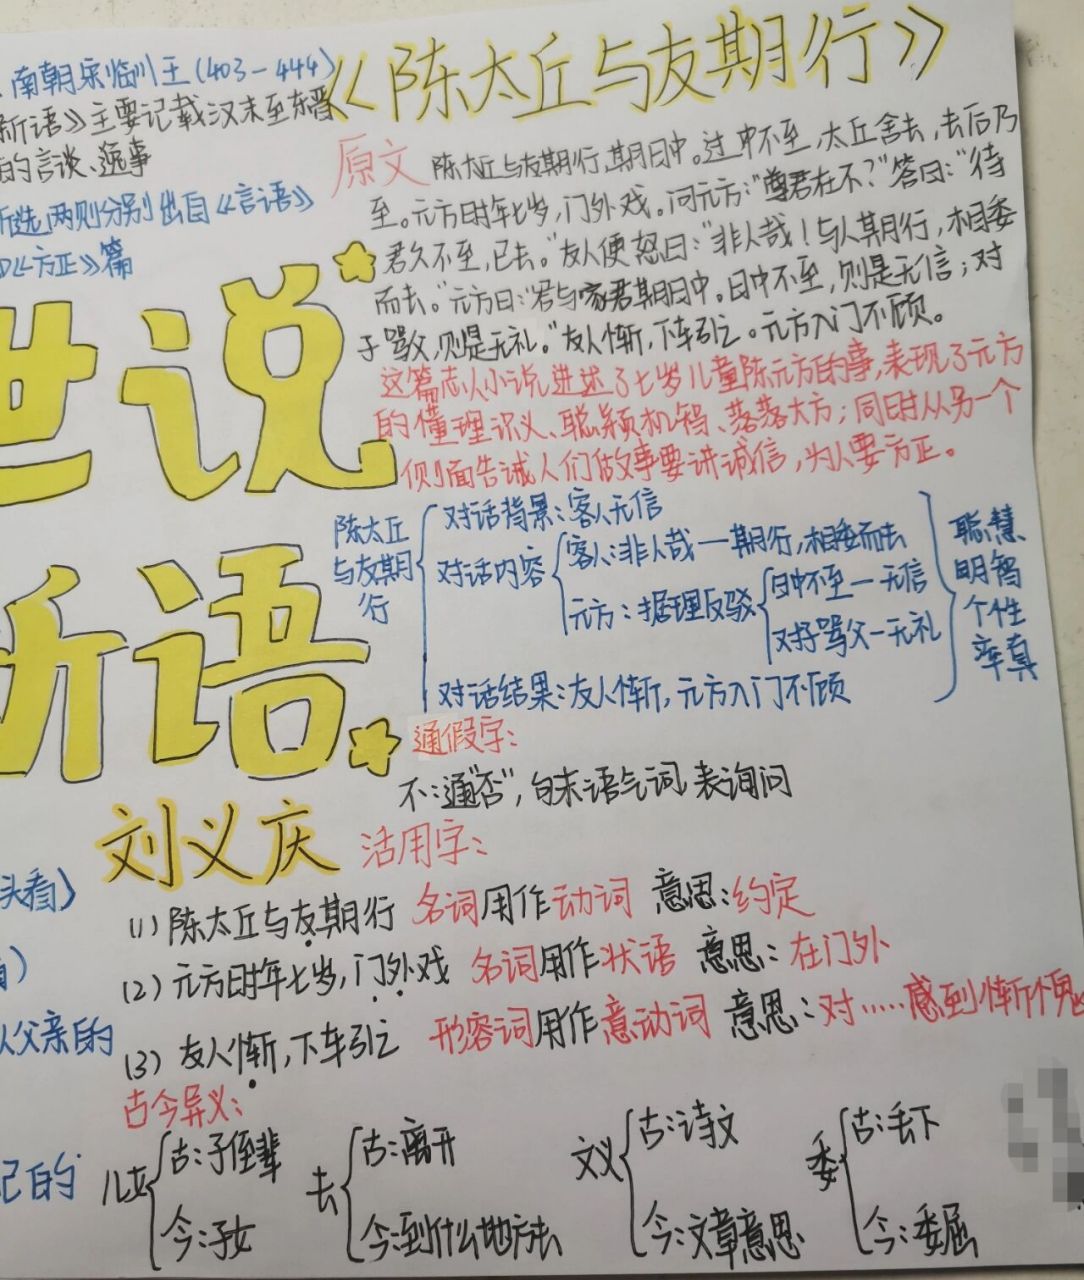 南朝宋临川王(403-444)
新语》主要记载汉末至东晋
的言谈、逸事
所选两则分别出自《言语》
《方正》篇
世说
新语
刘义庆
《陈太丘与友期行》
原文 陈太丘与友期行,期日中。过中不至,太丘舍去,去后乃
至。元方时年七岁,门外戏。问元方:"尊君在不?"答曰:"待
君久不至,已去。"友人便怒曰:"非人哉!与人期行,相委
而去。"元方曰:"君与家君期日中。日中不至,则是无信;对
子骂父,则是无礼。"友人惭,下车引之。元方入门不顾。
这篇志人小说进述了七岁儿童陈元方的事,表现了元方
的懂理识义、聪颖机智、落落大方;同时从另一个
侧面告诫人们做事要讲诚信,为人要方正。
陈太丘
与友期
行
对话背景:客人无信
对话内容
客人:非人哉—期行,相委而去
元方:据理反驳
日中不至—无信
对子骂父—无礼
对话结果:友人惭,元方入门不顾
聪慧
明智
个性
率真
通假字:
不:通"否",句末语气词,表询问
活用字:
(1)陈太丘与友期行 名词用作动词 意思:约定
(2)元方时年七岁,门外戏 名词用作状语 意思:在门外
(3)友人惭,下车引之 形容词用作意动词 意思:对……感到惭愧
头看)
)
父亲的
记的
古今异义:
儿女
古:子侄辈
今:子女
去
古:离开
今:到什么地方去
文义
古:诗文
今:文章意思
委
古:丢下
今:委屈